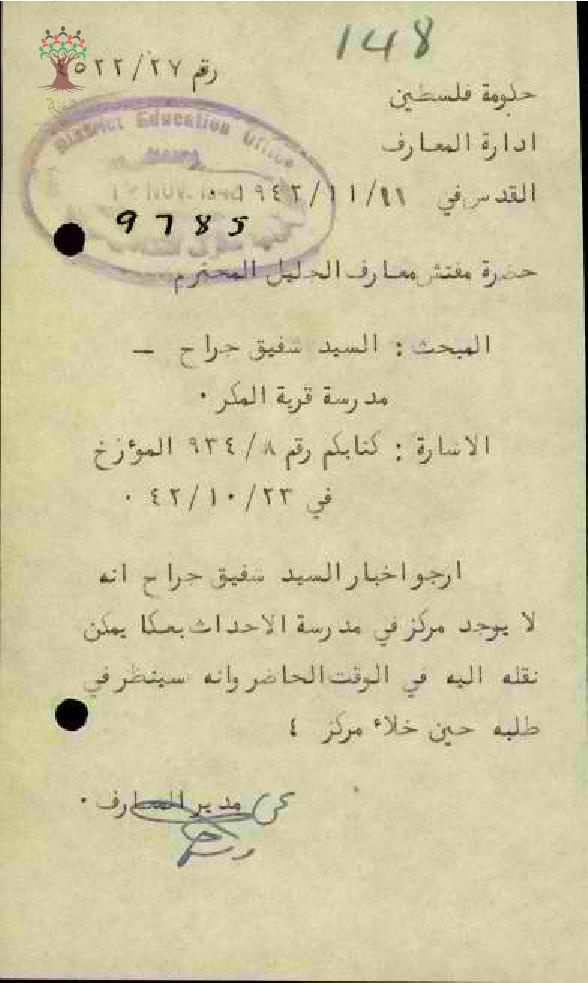 148
رقم ٥٢٢/٢٧
حكومة فلسطين
ادارة المعارف
القدس في ١٩٤٢/١١/١١
District Education Office
NOV. 1942
9785
حضرة مفتش معارف الجليل المحترم
المبحث : السيد شفيق جراح -
مدرسة قرية المكر ٠
الاشارة : كتابكم رقم ٩٣٤/٨ المؤرخ
في ٤٢/١٠/٢٣ ٠
ارجو اخبار السيد شفيق جراح انه
لا يوجد مركز في مدرسة الاحداث بعكا يمكن
نقله اليه في الوقت الحاضر وانه سينظر في
طلبه حين خلاء مركز ٤
عن مدير المعارف ٠